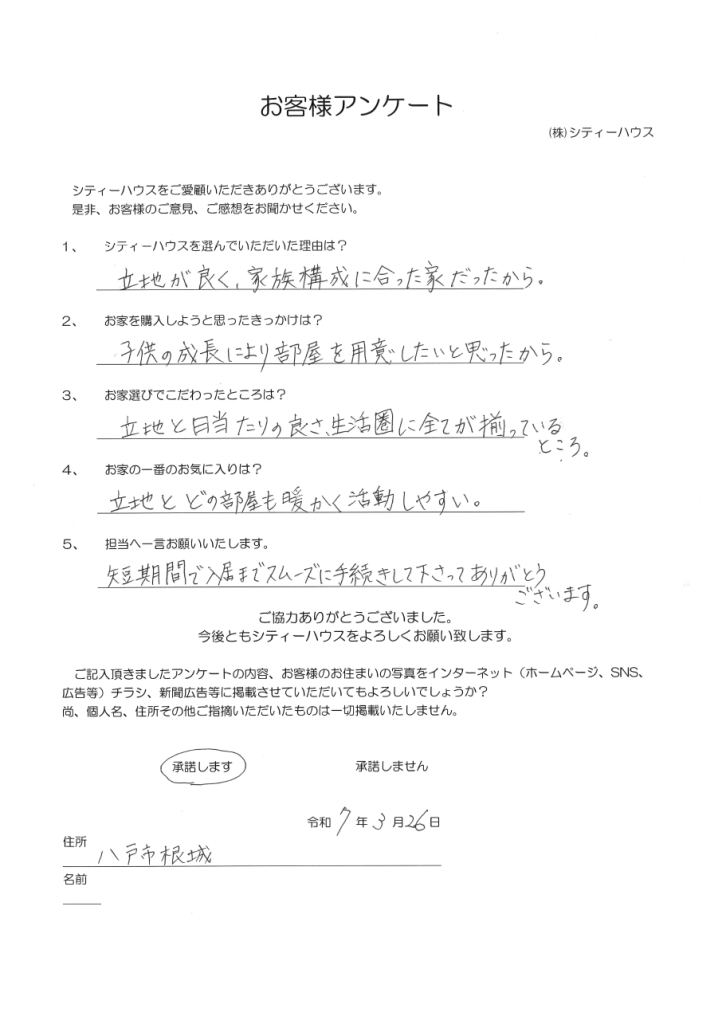 お客様アンケート
(株)シティーハウス
シティーハウスをご愛顧いただきありがとうございます。
是非、お客様のご意見、ご感想をお聞かせください。
1、 シティーハウスを選んでいただいた理由は？
立地が良く、家族構成に合った家だったから。
2、 お家を購入しようと思ったきっかけは？
子供の成長により部屋を用意したいと思ったから。
3、 お家選びでこだわったところは？
立地と日当たりの良さ、生活圏に全てが揃っている
ところ。
4、 お家の一番のお気に入りは？
立地と どの部屋も暖かく活動しやすい。
5、 担当へ一言お願いいたします。
短期間で入居までスムーズに手続きして下さってありがとう
ございます。
ご協力ありがとうございました。
今後ともシティーハウスをよろしくお願い致します。
ご記入頂きましたアンケートの内容、お客様のお住まいの写真をインターネット（ホームページ、SNS、
広告等）チラシ、新聞広告等に掲載させていただいてもよろしいでしょうか？
尚、個人名、住所その他ご指摘いただいたものは一切掲載いたしません。
承諾します 承諾しません
令和 7 年 3 月 26 日
住所
八戸市根城
名前